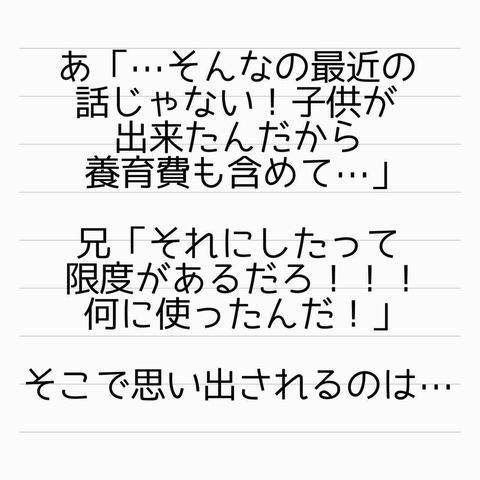 あ「…そんなの最近の
話じゃない！子供が
出来たんだから
養育費も含めて…」
兄「それにしたって
限度があるだろ！！！
何に使ったんだ！」
そこで思い出されるのは…